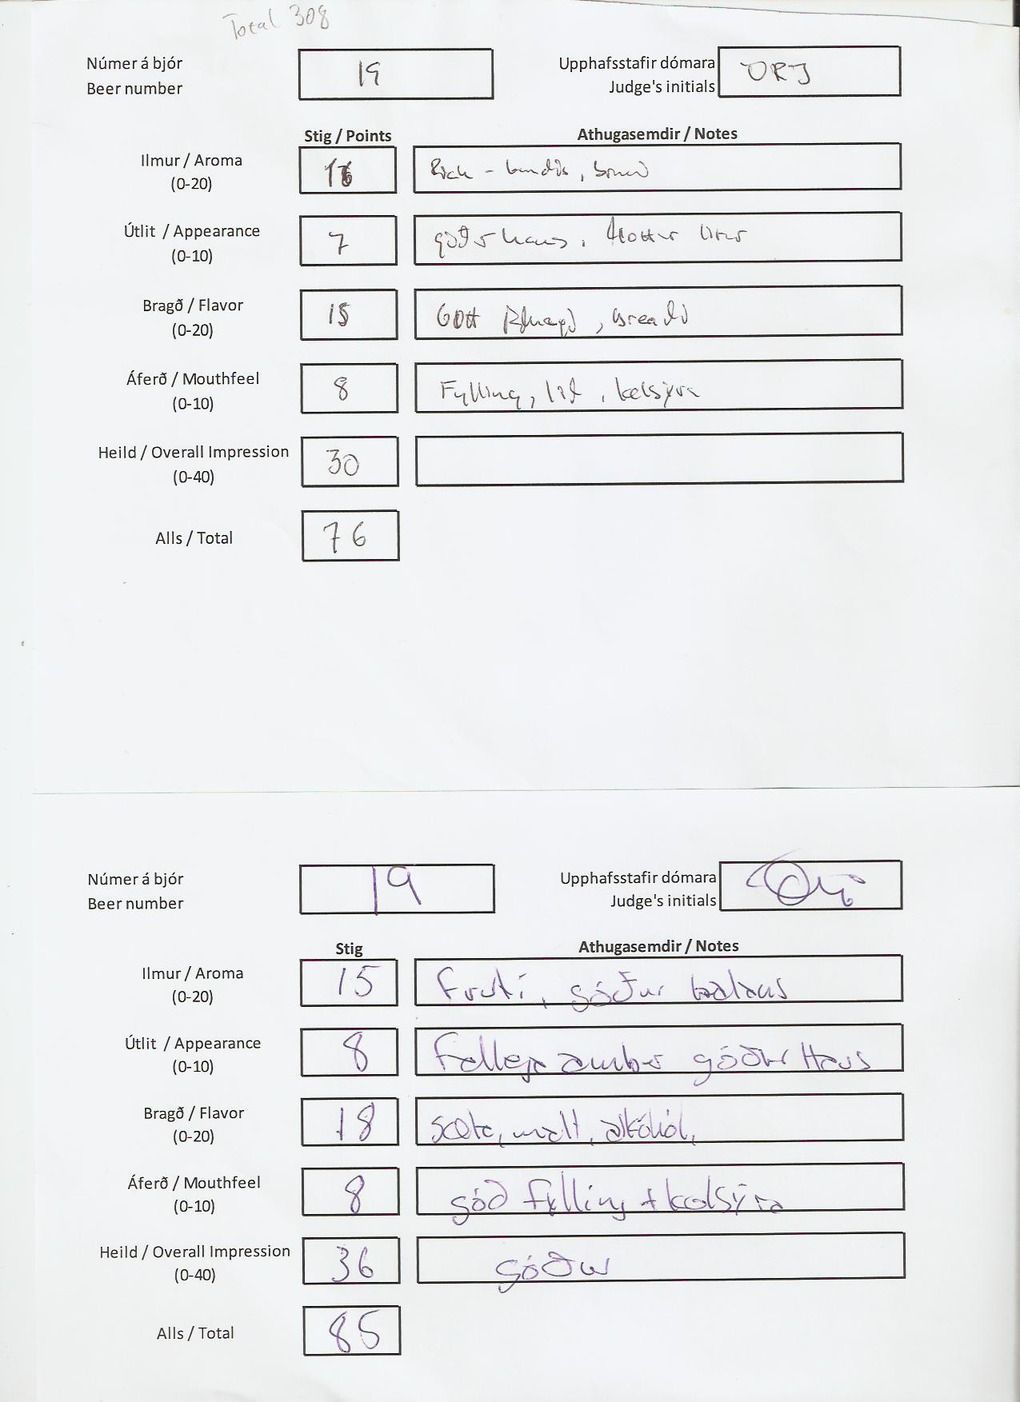 Total 308
Númer á bjór
Beer number
19
Upphafsstafir dómara
Judge's initials
ORJ
Stig / Points
Athugasemdir / Notes
Ilmur / Aroma
(0-20)
16
Útlit / Appearance
(0-10)
7
góður haus, flottur litur
Bragð / Flavor
(0-20)
15
Gott
Áferð / Mouthfeel
(0-10)
8
Fylling, kolsýra
Heild / Overall Impression
(0-40)
30
Alls / Total
76
Númer á bjór
Beer number
19
Upphafsstafir dómara
Judge's initials
Stig
Athugasemdir / Notes
Ilmur / Aroma
(0-20)
15
góður balans
Útlit / Appearance
(0-10)
8
amber góður Haus
Bragð / Flavor
(0-20)
18
sæta, malt, alkóhól,
Áferð / Mouthfeel
(0-10)
8
góð fylling + kolsýra
Heild / Overall Impression
(0-40)
36
góður
Alls / Total
85